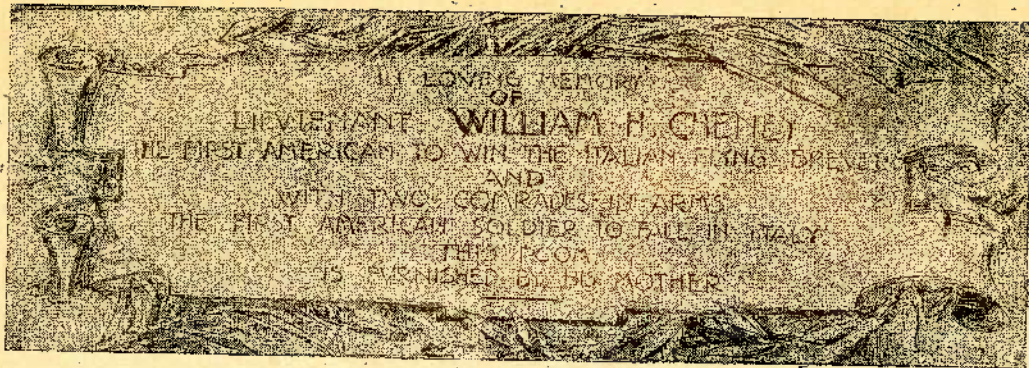 IN LOVING MEMORY
OF
LIEVTENANT WILLIAM H. CHENEY
THE FIRST AMERICAN TO WIN THE ITALIAN FLYING BREVET
AND
WITH TWO COMRADES IN ARMS
THE FIRST AMERICAN SOLDIER TO FALL IN ITALY
THIS ROOM
IS FVRNISHED BY HIS MOTHER